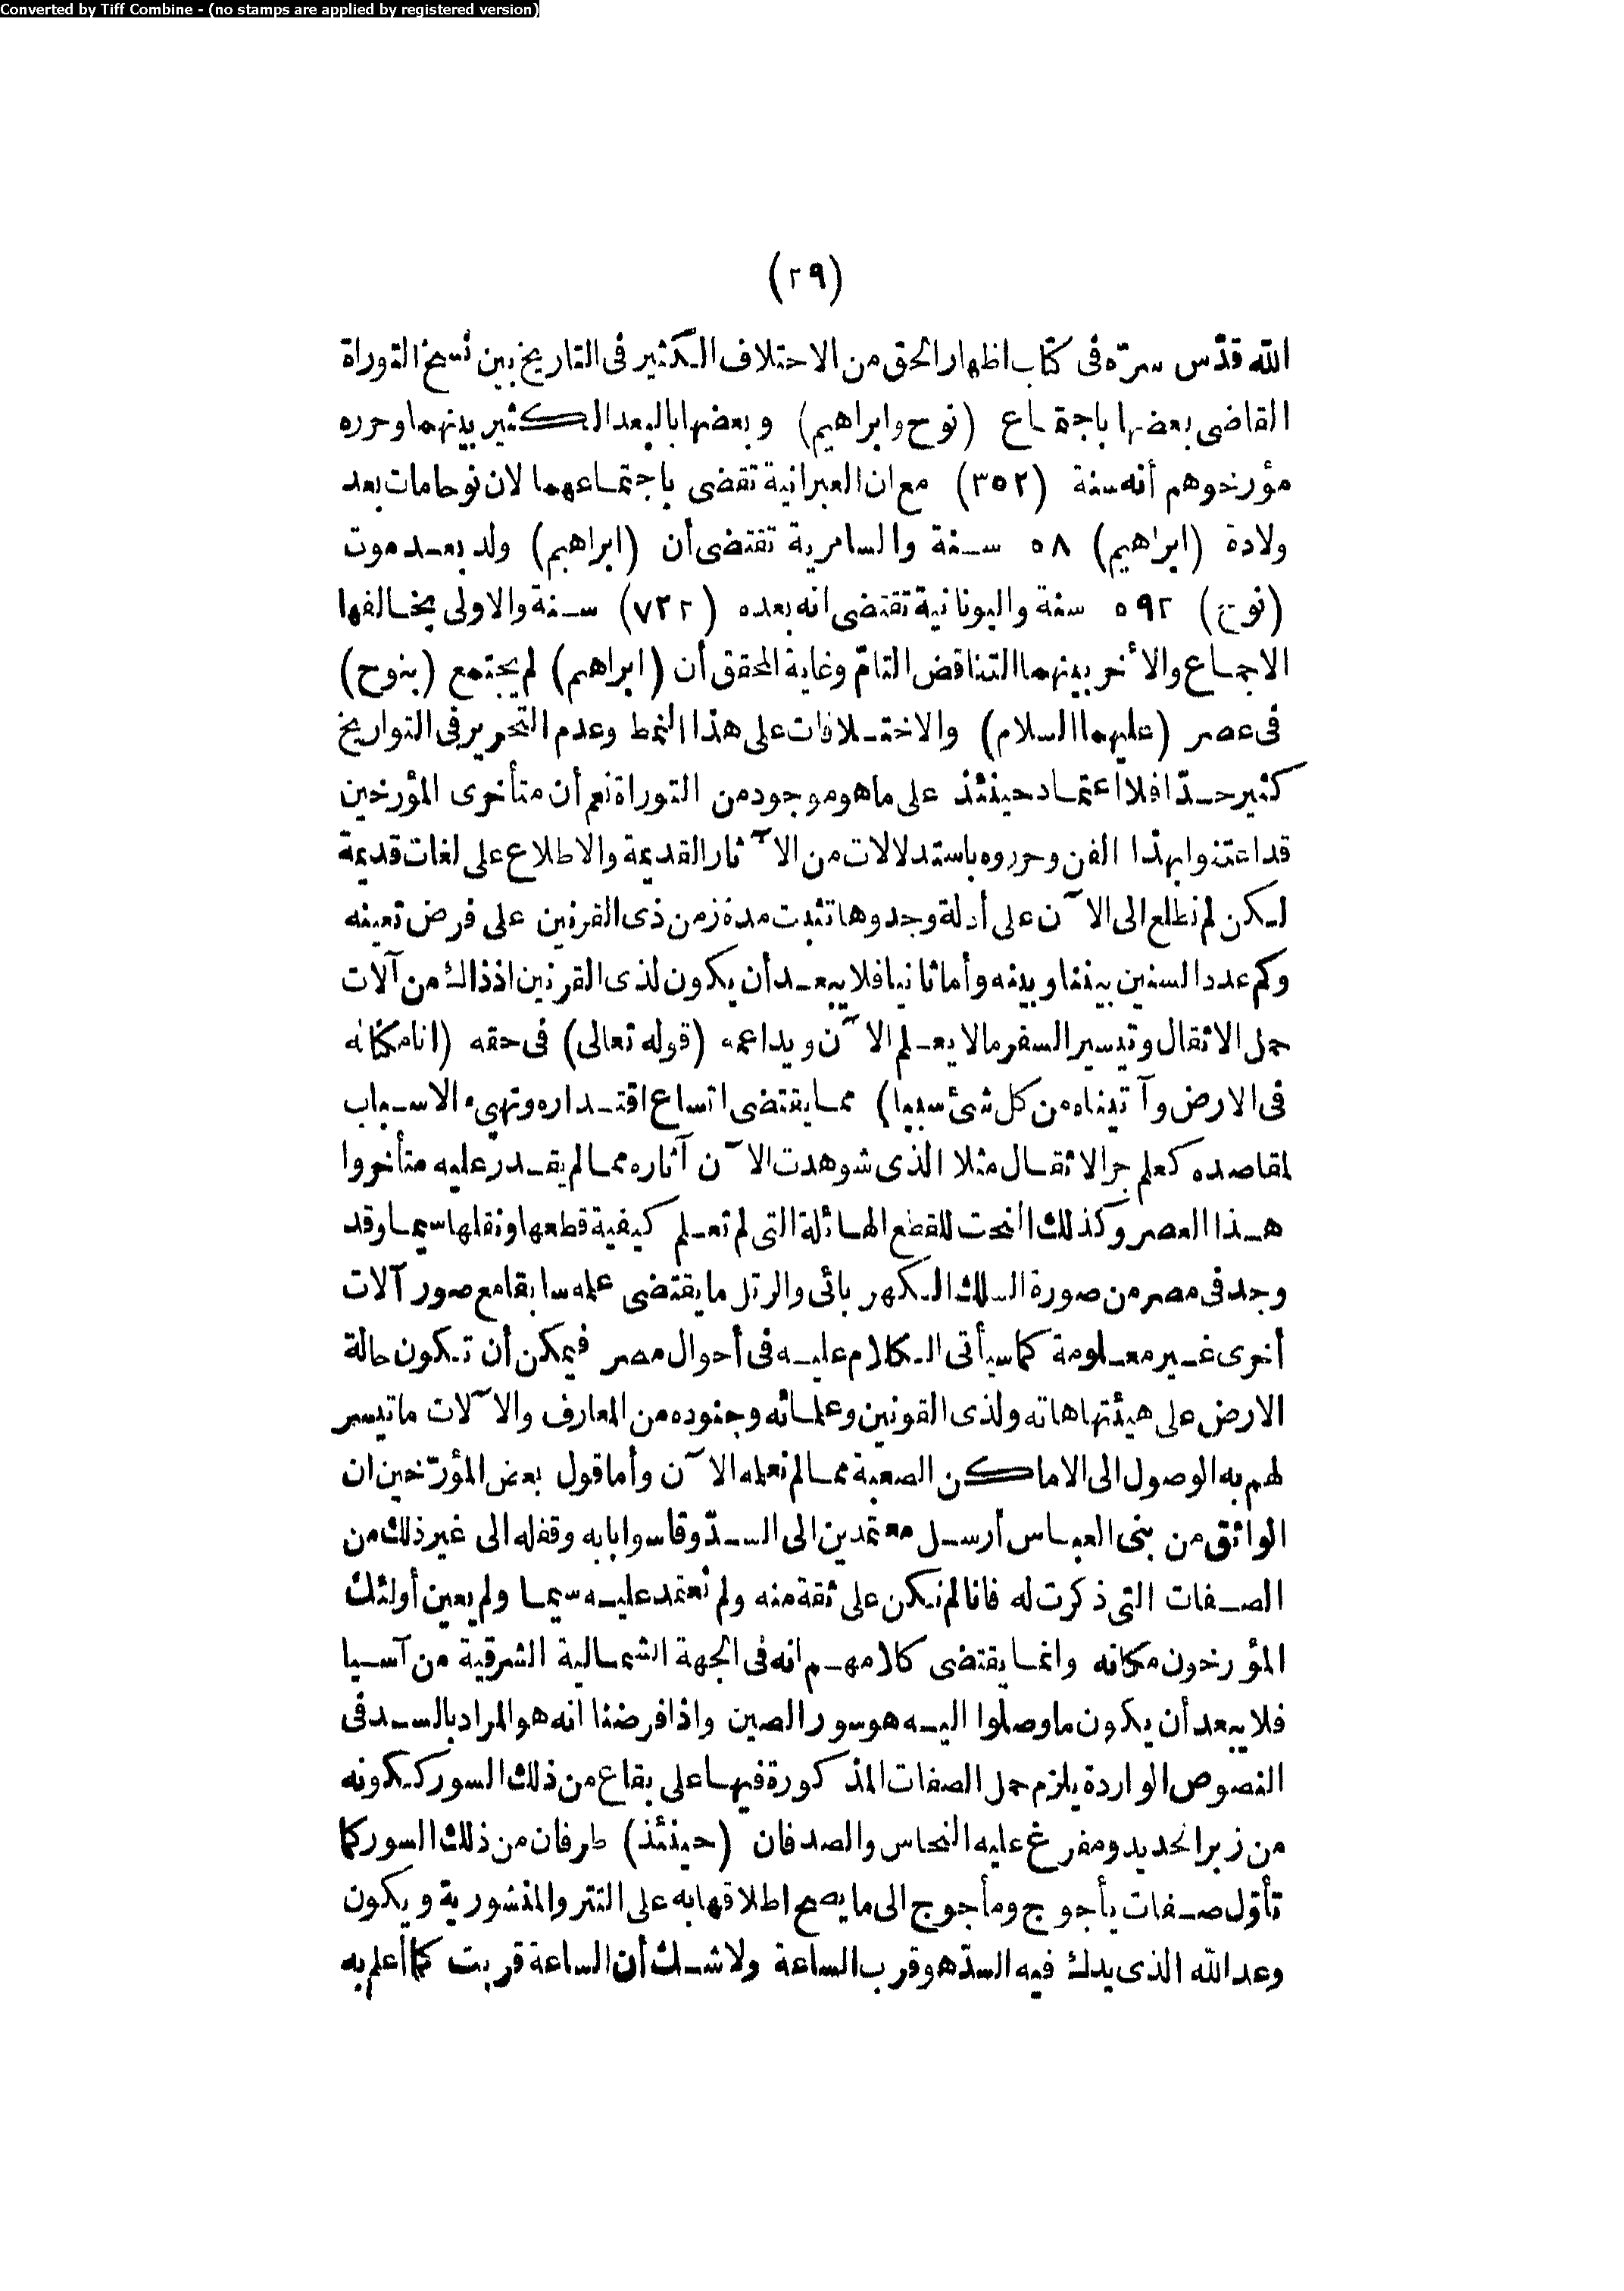 Converted by Tiff Combine - (no stamps are applied by registered version)
(٢٩)
الله قدّس سرّه فى كتاب اظهار الحق من الاختلاف الكثير فى التاريخ بين نسخ التوراة
القاضى بعضها باجتماع (نوح وابراهيم) وبعضها بالبعد الكثير بينهما وحرره
مؤرخوهم أنه سنة (٣٥٢) مع ان العبرانية تقضى باجتماعهما لان نوحا مات بعد
ولادة (ابراهيم) ٥٨ سنة والسامرية تقتضى أن (ابراهيم) ولد بعد موت
(نوح) ٥٩٢ سنة واليونانية تقتضى انه بعده (٧٢٢) سنة والاولى يخالفها
الاجماع والأخر بينهما التناقض التامّ وغاية المحقق أن (ابراهيم) لم يجتمع (بنوح)
فى عصر (عليهما السلام) والاختلافات على هذا النمط وعدم التحرير فى التواريخ
كثير جدّا فلا اعتماد حينئذ على ما هو موجود من التوراة نعم أن متأخرى المؤرخين
قد اعتنوا بهذا الفن وحرروه باستدلالات من الآثار القديمة والاطلاع على لغات قديمة
لكن لم نطلع الى الآن على أدلة وجدوها تثبت مدة زمن ذى القرنين على فرض تعينه
وكم عدد السنين بيننا وبينه وأما ثانيا فلا يبعد أن يكون لذى القرنين اذ ذاك من آلات
حمل الاثقال وتيسير السفر مالا يعلم الآن ويداعمه (قوله تعالى) فى حقه (انا مكنا له
فى الارض وآتيناه من كل شئ سببا) مما يقتضى اتساع اقتداره وتهيء الاسباب
لمقاصده كعلم جر الاثقال مثلا الذى شوهدت الآن آثاره مما لم يقدر عليه متأخروا
هذا العصر وكذلك النحت للقطع الهائلة التى لم تعلم كيفية قطعها ونقلها سيما وقد
وجد فى مصر من صورة السلك الكهربائى والرتل ما يقتضى عمله سابقا مع صور آلات
أخرى غير معلومة كما سيأتى الكلام عليه فى أحوال مصر فيمكن أن تكون حالة
الارض على هيئتها هاته ولذى القرنين وعلمائه وجنوده من المعارف والآلات ما تيسر
لهم به الوصول الى الاماكن الصعبة مما لم نعلمه الآن وأما قول بعض المؤرّخين ان
الواثق من بنى العباس أرسل معتمدين الى السدّ وقاسوا بابه وقفله الى غير ذلك من
الصفات التى ذكرت له فانا لم نكن على ثقة منه ولم نعتمد عليه سيما ولم يعين أولئك
المؤرخون مكانه وانما يقتضى كلامهم انه فى الجهة الشمالية الشرقية من آسيا
فلا يبعد أن يكون ما وصلوا اليه هو سور الصين واذا فرضنا انه هو المراد بالسد فى
النصوص الواردة يلزم حمل الصفات المذكورة فيها على بقاع من ذلك السور ككونه
من زبر الحديد ومفرغ عليه النحاس والصدفان (حينئذ) طرفان من ذلك السور كما
تأوّل صفات يأجوج ومأجوج الى ما يصح اطلاقها به على التتر والمنشورية ويكون
وعد الله الذى يدك فيه السدّ هو قرب الساعة ولا شك أن الساعة قربت كما أعلم به